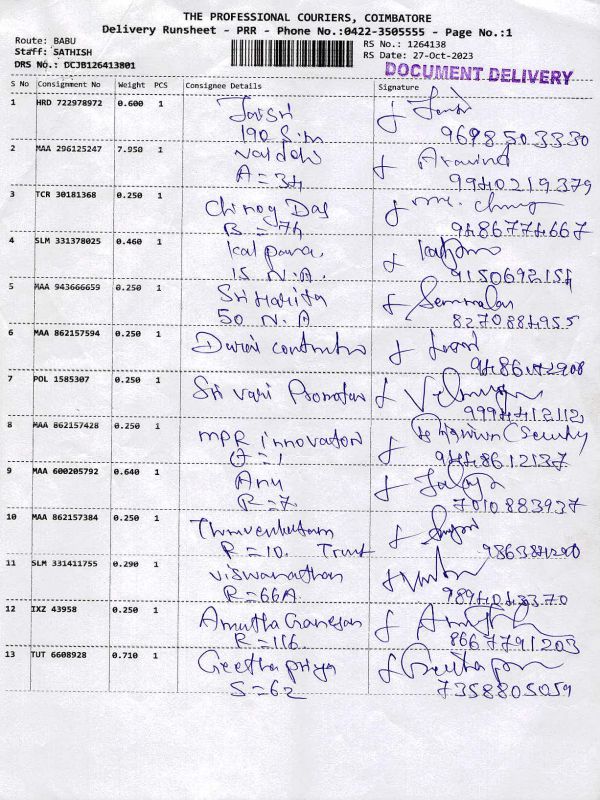 THE PROFESSIONAL COURIERS, COIMBATORE
Delivery Runsheet - PRR - Phone No.:0422-3505555 - Page No.:1
Route: BABU
Staff: SATHISH
DRS No.: DCJB126413801
RS No.: 1264138
RS Date: 27-Oct-2023
DOCUMENT DELIVERY
S No Consignment No Weight PCS Consignee Details Signature
1 HRD 722978972 0.600 1 Jaisri
190 S.m 9698503330
2 MAA 296125247 7.950 1 Aravind
A = 34 9940219379
3 TCR 30181368 0.250 1 Das
B = 74 9486774667
4 SLM 331378025 0.460 1 Kalpana
15 N.A. 9150692154
5 MAA 943666659 0.250 1 Sri Harita
50 N.A 8270884955
6 MAA 862157594 0.250 1 Durai
7 POL 1585307 0.250 1 Sri Vari
9994412112
8 MAA 862157428 0.250 1 MPR innovation
9448612137
9 MAA 600205792 0.640 1 Anu
R = 7 7010883937
10 MAA 862157384 0.250 1
R = 10. Trust
11 SLM 331411755 0.290 1 Viswanathan
R = 66A. 9894043370
12 IXZ 43958 0.250 1 Amutha Ganesan
R = 116 8667791203
13 TUT 6608928 0.710 1 Geetha priya
S = 62 7358805059